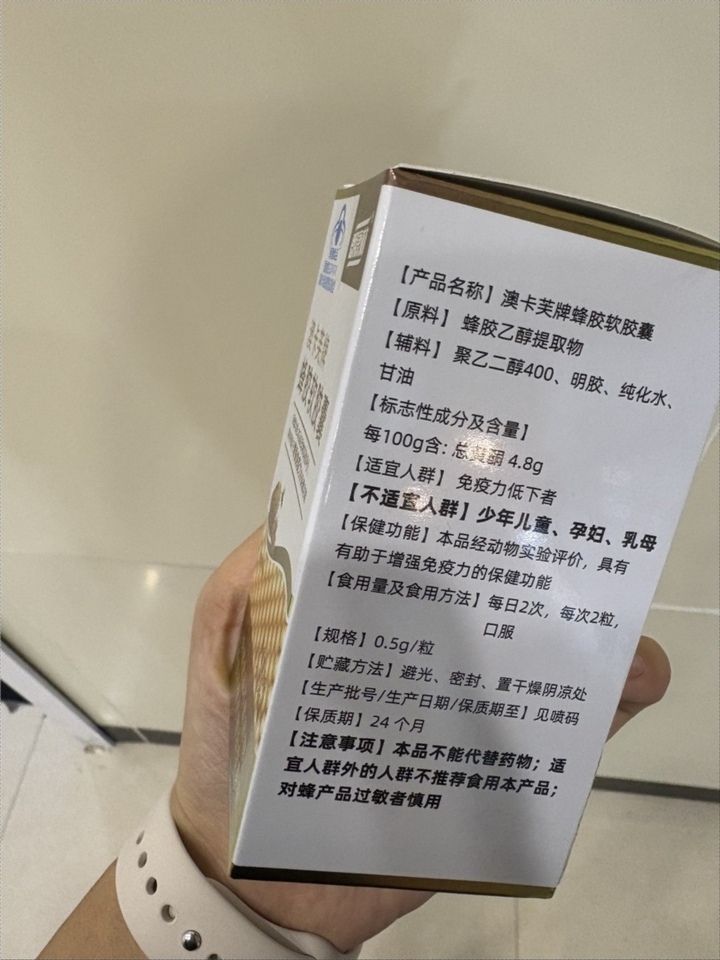 【产品名称】澳卡芙牌蜂胶软胶囊
【原料】 蜂胶乙醇提取物
【辅料】 聚乙二醇400、明胶、纯化水、
甘油
【标志性成分及含量】
每100g含: 总黄酮 4.8g
【适宜人群】 免疫力低下者
【不适宜人群】少年儿童、孕妇、乳母
【保健功能】本品经动物实验评价，具有
有助于增强免疫力的保健功能
【食用量及食用方法】每日2次，每次2粒，
口服
【规格】0.5g/粒
【贮藏方法】避光、密封、置干燥阴凉处
【生产批号/生产日期/保质期至】见喷码
【保质期】24 个月
【注意事项】本品不能代替药物；适
宜人群外的人群不推荐食用本产品；
对蜂产品过敏者慎用
蜂胶软胶囊